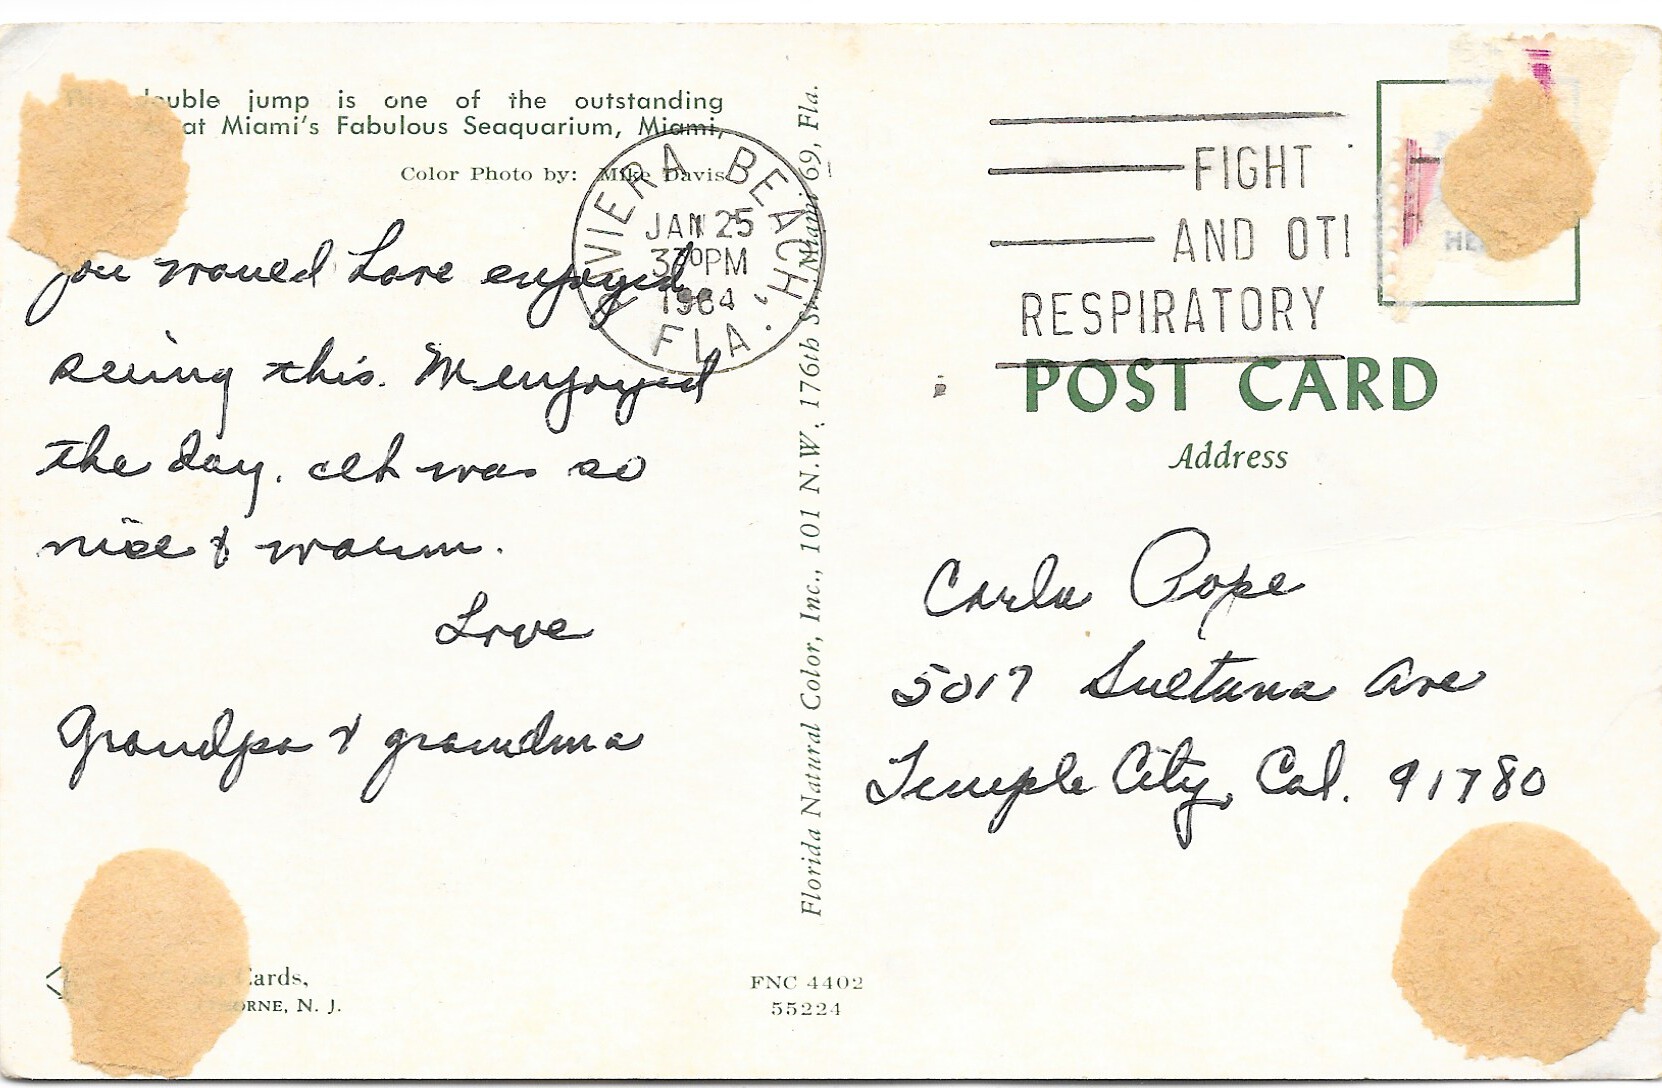 double jump is one of the outstanding
at Miami's Fabulous Seaquarium, Miami,
Color Photo by: Mike Davis
RIVIERA BEACH,
JAN 25
330PM
1964
FLA.
FIGHT
AND OT
RESPIRATORY
POST CARD
Address
you would Love enjoyed
seeing this. We enjoyed
the day. It was so
nice & warm.
Love
Grandpa & grandma
Florida Natural Color, Inc., 101 N.W. 176th St., Miami 69, Fla.
Carla Pope
5017 Sultana Ave
Temple City, Cal. 91780
Cards,
ORNE, N. J.
FNC 4402
55224